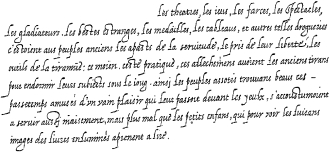 Les theatres, les ieus, les farces, les spectacles,
les gladiateurs, les bestes estranges, les medailles, les tableaus, et autres telles drogueries
c'estoient aus peuples anciens les apasts de la servitude, le pris de leur liberté, les
outils de la tirannie: ce moien, ceste pratique, ces allechemens avoient les anciens tirans
pour endormir leurs subiects sous le ioug. ainsi les peuples assotis trouvans beaus ces
passetemps amusés d'un vain plaisir qui leur passoit devant les yeulx, s'accoustumoient
a servir aussi niaisement, mais plus mal que les petits enfans, qui pour voir les luisans
images des livres enluminés aprenent a lire.